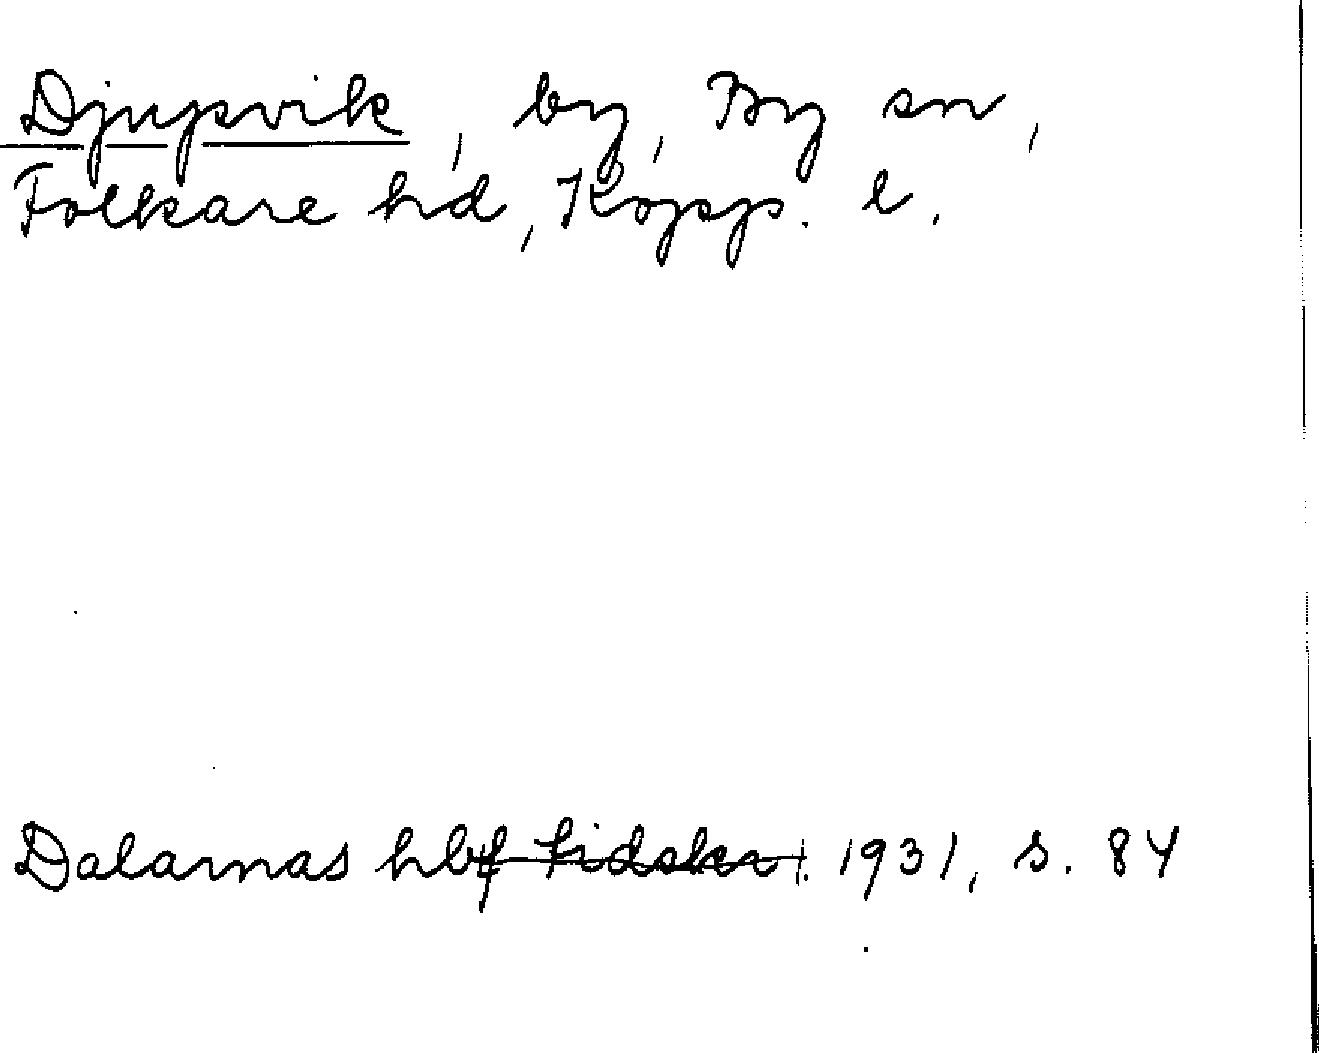 Djupsvik, by, By sn,
Folkare hd, Kopp. l.
Dalarnas hbf tidskr. 1931, s. 84